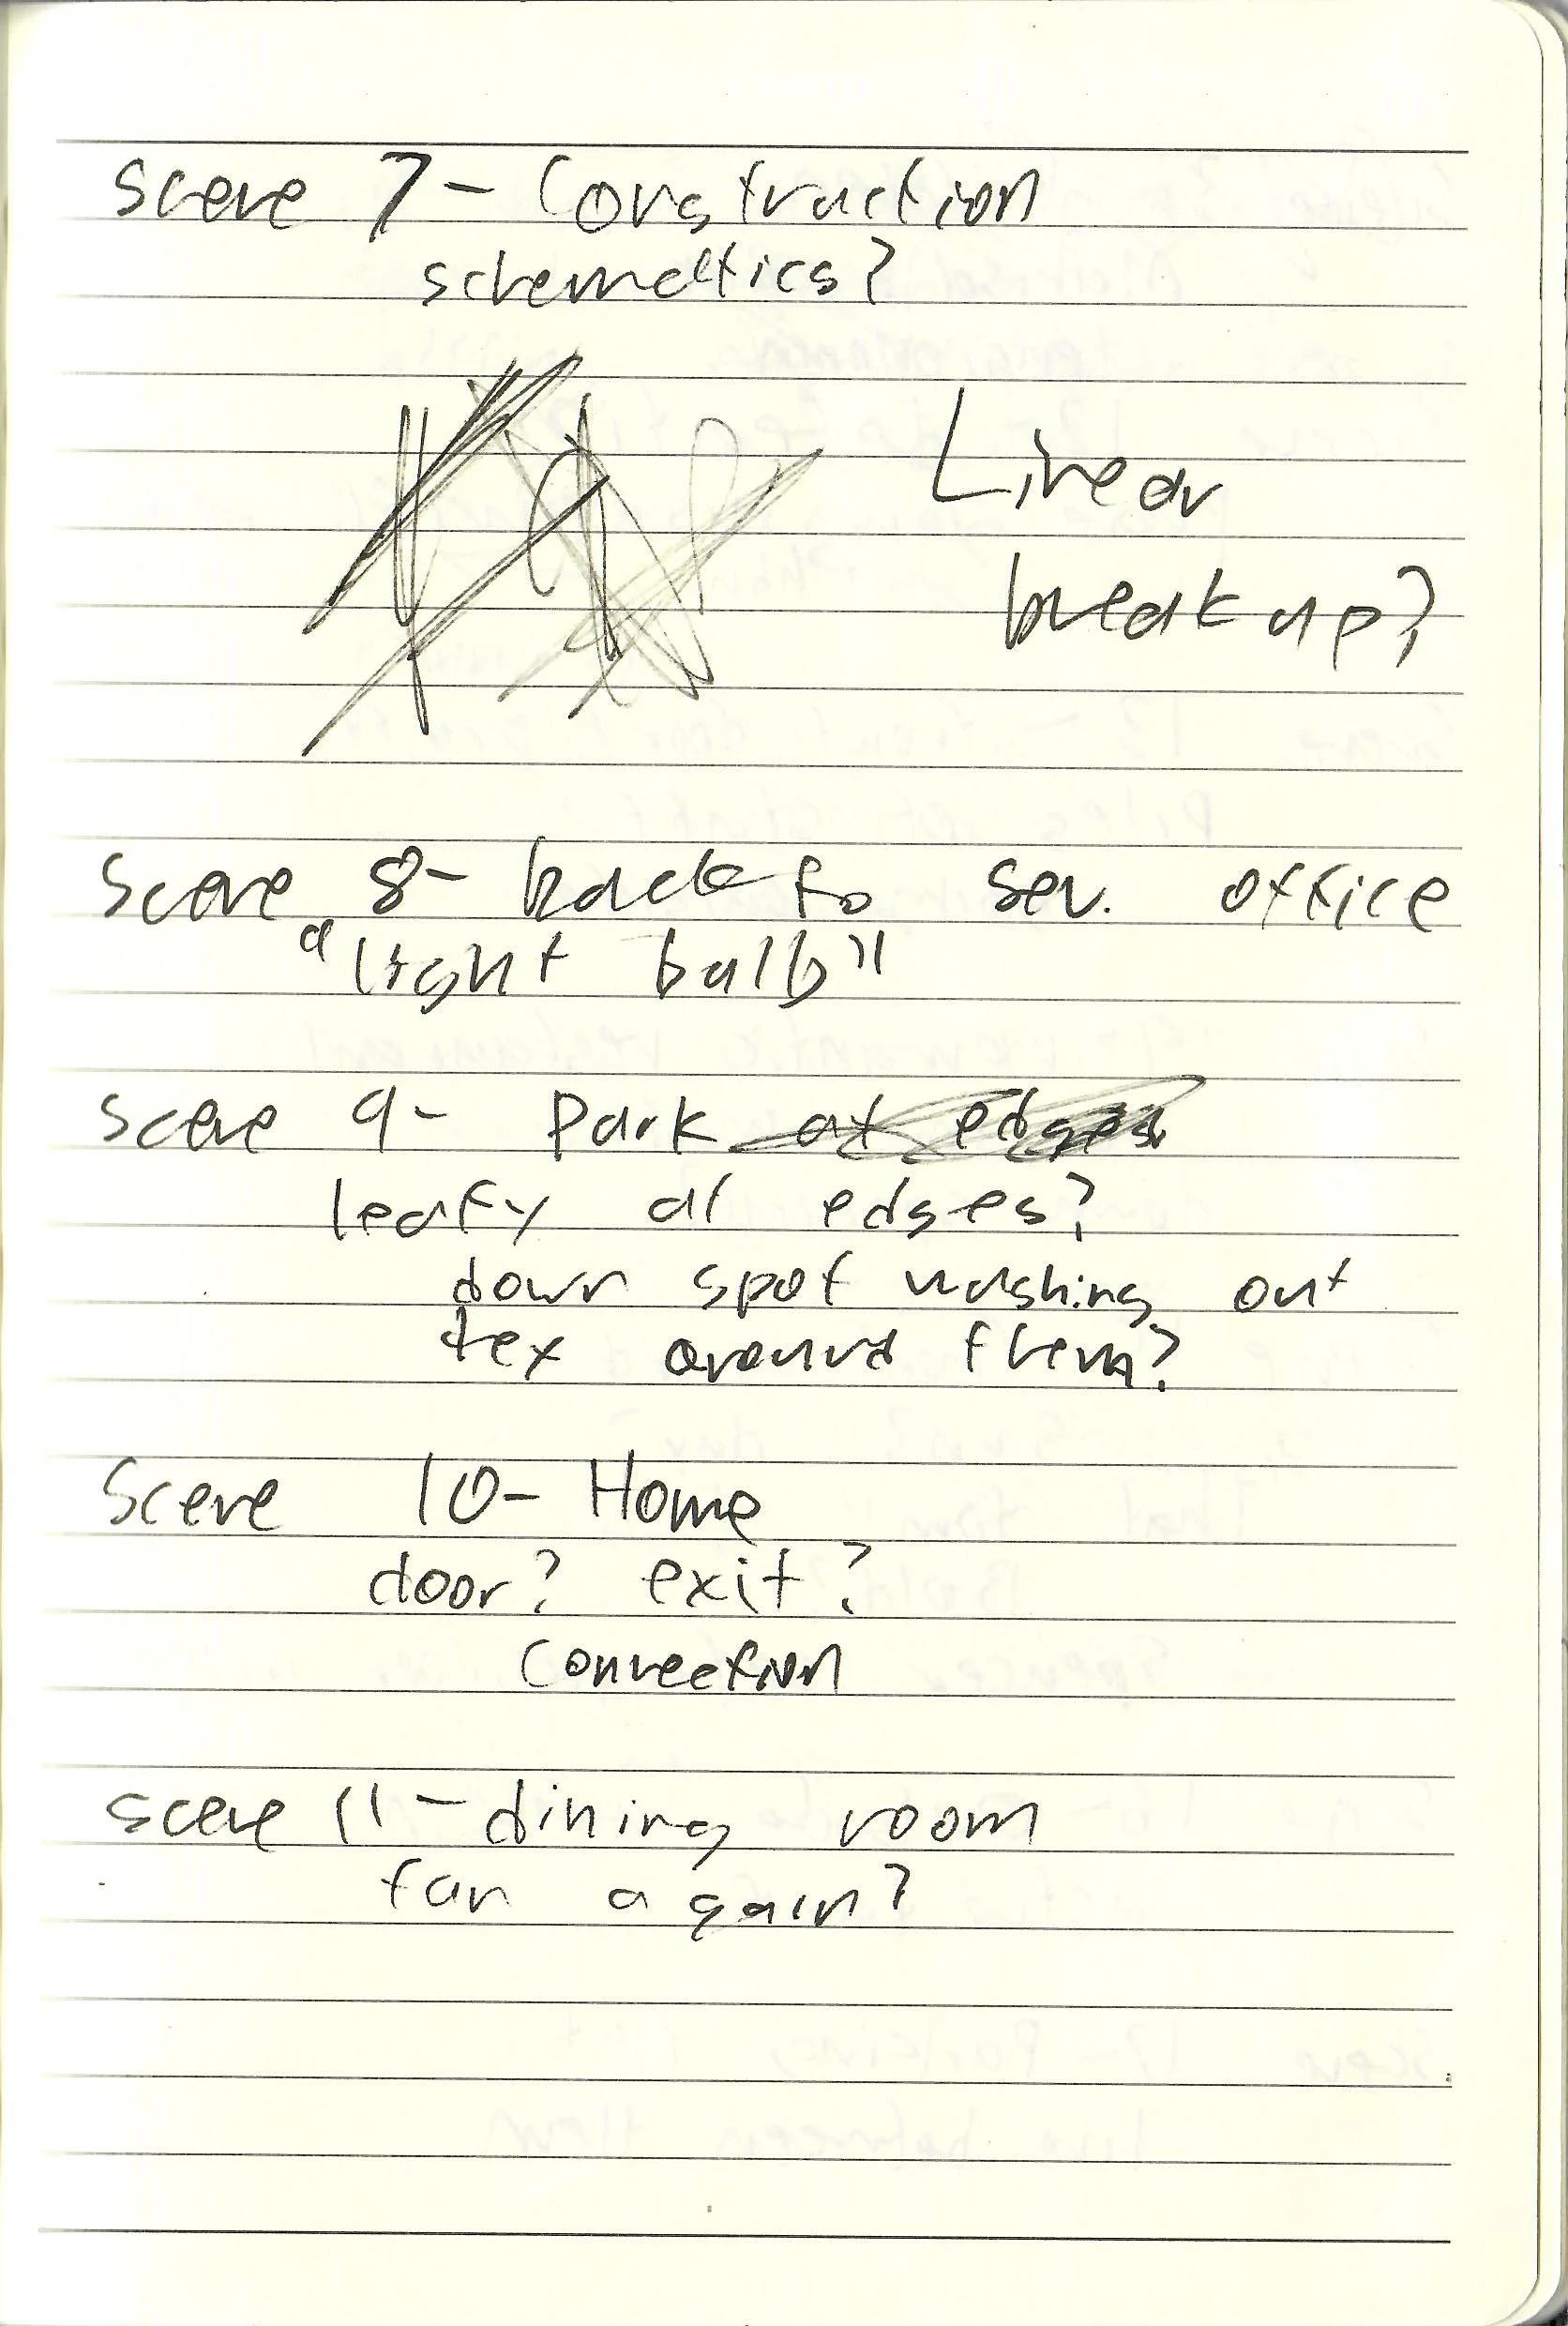 Scene 7 - Construction
schematics?
Linear
break up?
Scene 8 - back to sen. office
"light bulb"
Scene 9 - Park at edges
leafy at edges?
down spot washing out
tex around them?
Scene 10 - Home
door? exit?
Connection
Scene 11 - dining room
fan again?